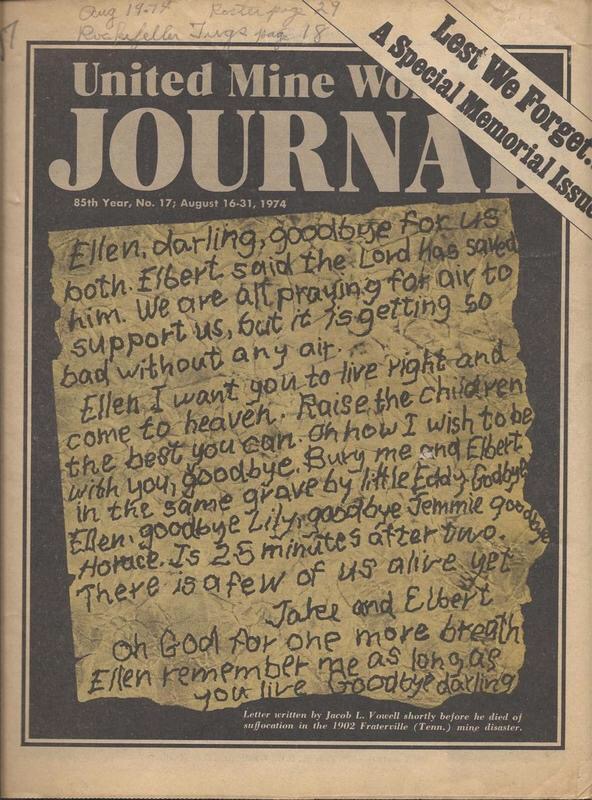 Aug 1974 Roster page 29
Rockefeller Turgs page 18
Lest We Forget..
A Special Memorial Issue
United Mine Wo
JOURNAL
85th Year, No. 17; August 16-31, 1974
Ellen, darling, goodbye for us
both. Elbert said the Lord has saved
him. We are all praying for air to
support us, but it is getting so
bad without any air.
Ellen I want you to live right and
come to heaven. Raise the children
the best you can. Oh how I wish to be
with you, goodbye. Bury me and Elbert
in the same grave by little Eddy. Godbye
Ellen, goodbye Lily, goodbye Jemmie goodbye
Horace. Is 25 minutes after two.
There is a few of us alive yet
Jake and Elbert
Oh God for one more breath
Ellen remember me as long as
you live Goodbye darling
Letter written by Jacob L. Vowell shortly before he died of
suffocation in the 1902 Fraterville (Tenn.) mine disaster.